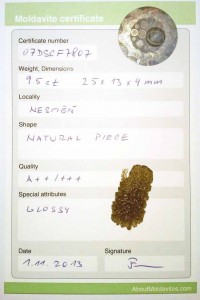 Moldavite certificate
Certificate number
07DSCF7807
Weight, Dimensions
9.5 ct 25 x 13 x 4 mm
Locality
NESMĚŇ
Shape
NATURAL PIECE
Quality
A+++/+++
Special attributes
GLOSSY
Date
Signature
1.11.2013
AboutMoldavites.com